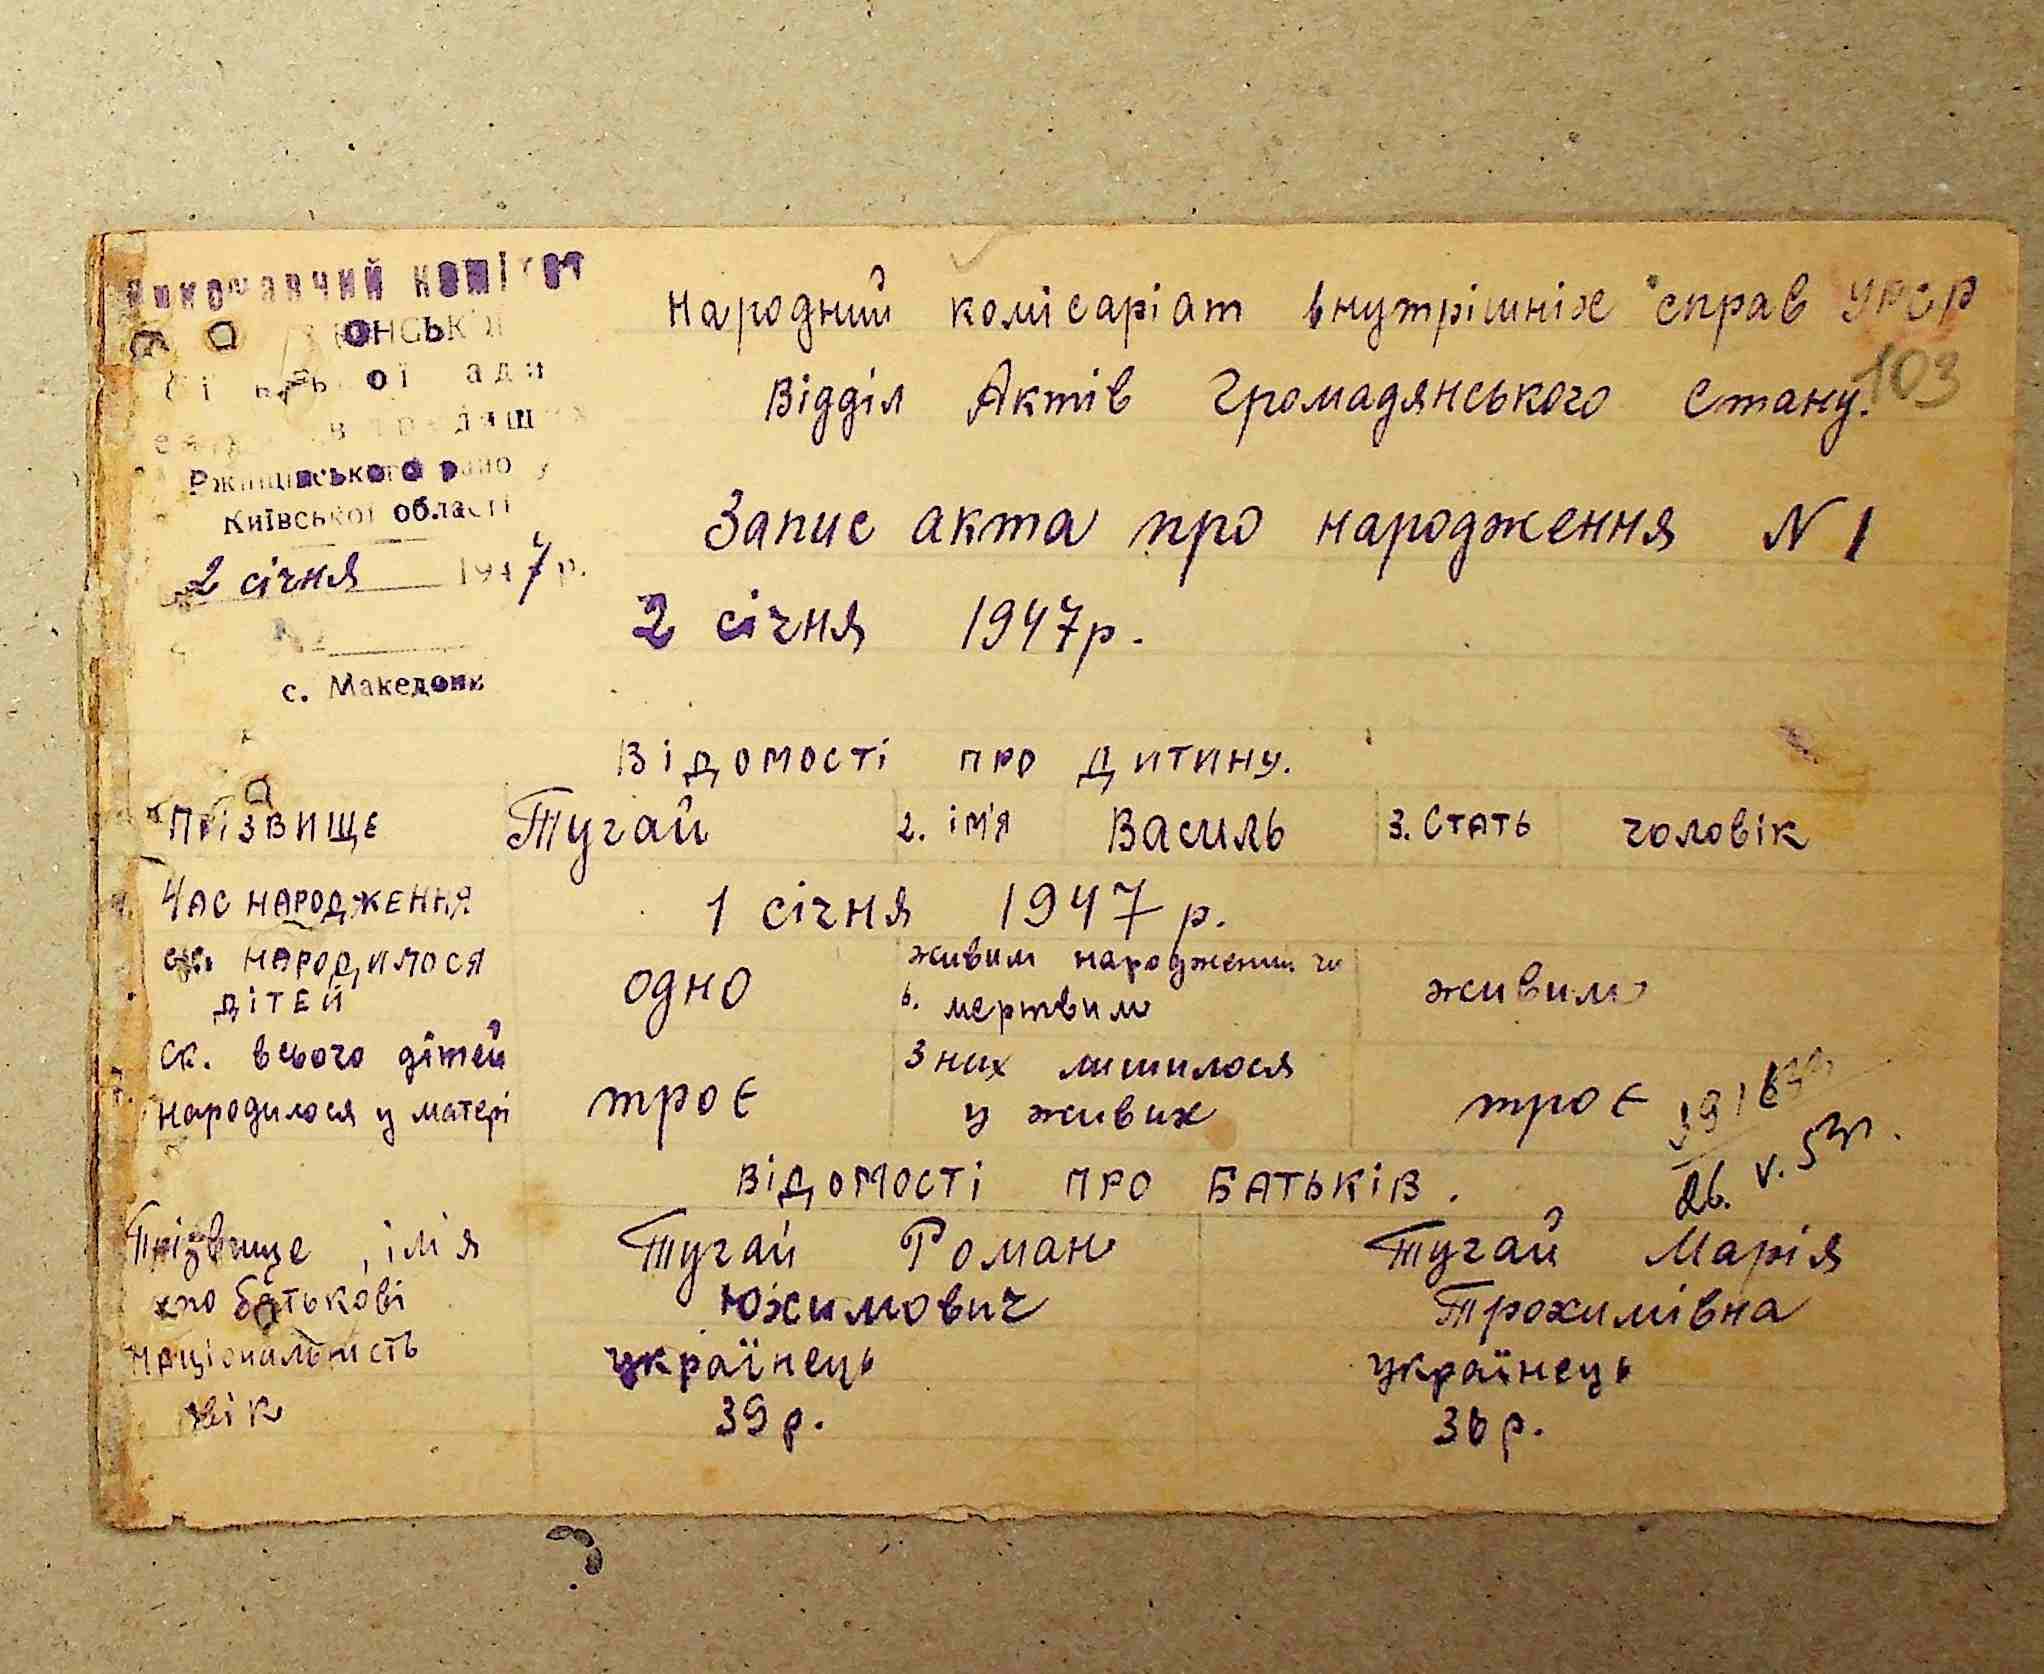 Виконавчий комітет
Сільської ради
Ржищівського району
Київської області
2 січня 1947 р.
№
с. Македони
Народний комісаріат внутрішніх справ УРСР
103
Відділ Актів Громадянського Стану.
Запис акта про народження N 1
2 січня 1947р.
Відомості про дитину.
Прізвище Тугай 2. ім'я Василь 3. Стать чоловік
Час народження 1 січня 1947 р.
ск. народилося дітей одно 6. живим народженим чи мертвим живим
ск. всього дітей народилося у матері троє З них лишилося у живих троє
26. V. 53р.
Відомості про батьків.
Прізвище, ім'я Тугай Роман Тугай Марія
по батькові Юхимович Трохимівна
національність українець українець
вік 39 р. 36 р.